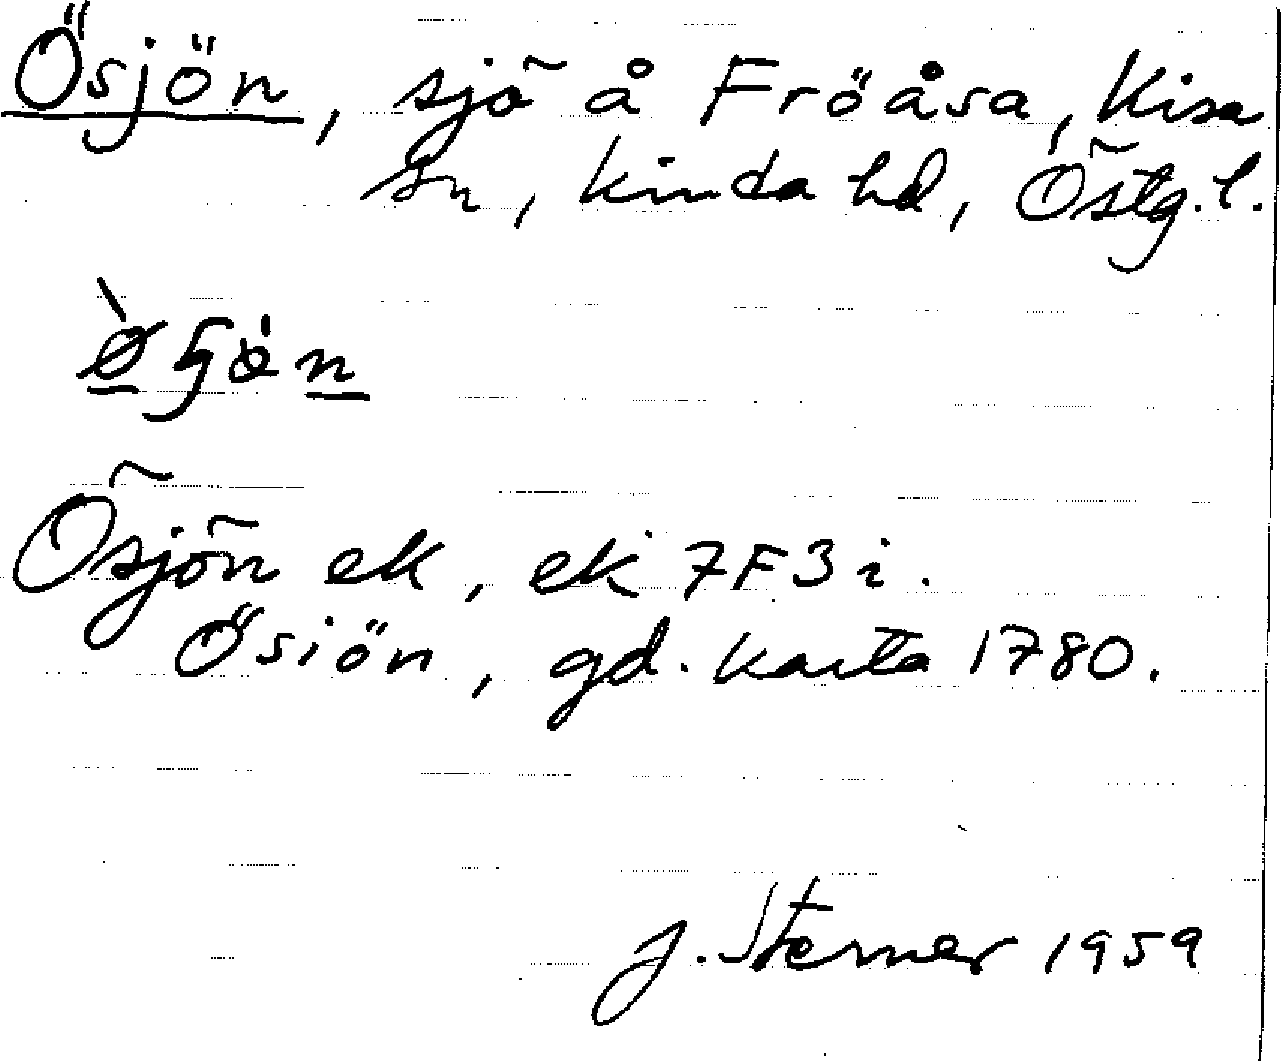 Ösjön, sjö å Fröåsa, Kisa
sn, Kinda hd, Östg. l.
Ösjön ek, ek 7F3i.
Ösiön, gd. karta 1780.
J. Sterner 1959